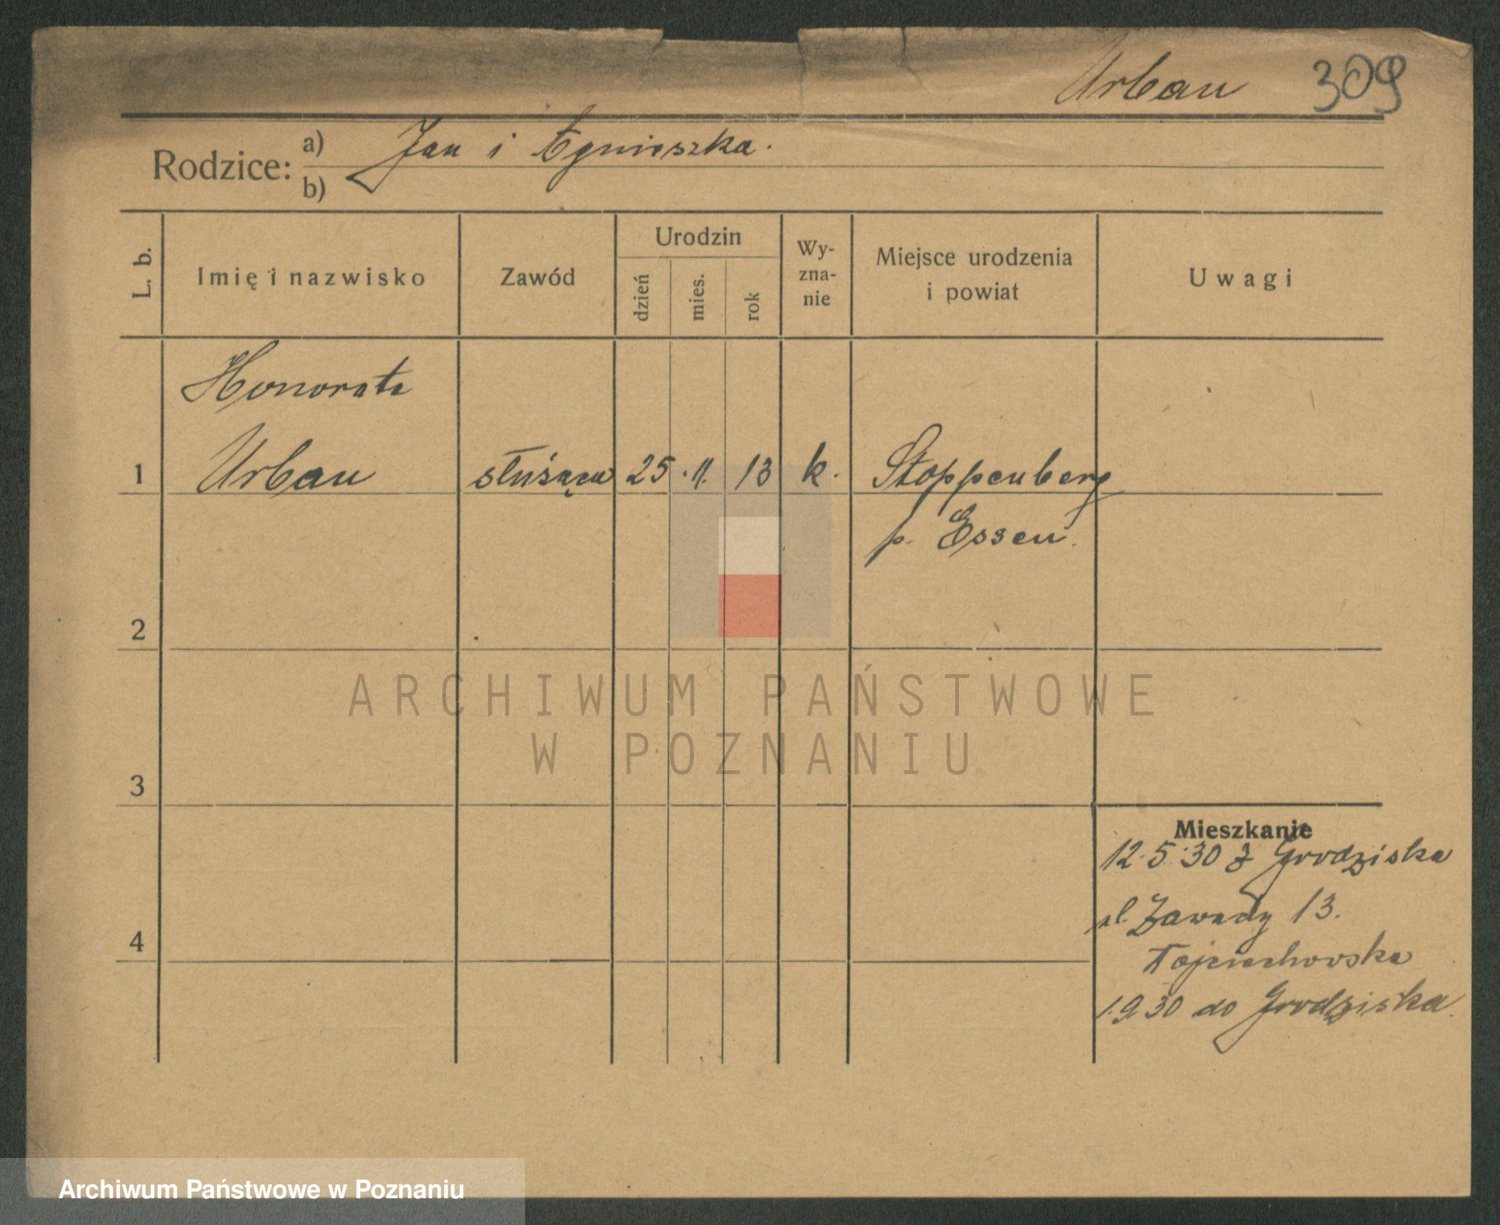 Urban 309
Rodzice: a) Jan i Agnieszka.
b)
L. b.
Imię i nazwisko
Zawód
Urodzin
dzień
mies.
rok
Wy-
zna-
nie
Miejsce urodzenia
i powiat
Uwagi
Honorata
1 Urban służąca 25 . 11. 13 k. Stoppenberg
p. Essen.
2
3
4
Mieszkanie
12.5.30 z Grodziska
ul. Zawady 13.
1.9.30 do Grodziska.
ARCHIWUM PAŃSTWOWE
W POZNANIU
Archiwum Państwowe w Poznaniu